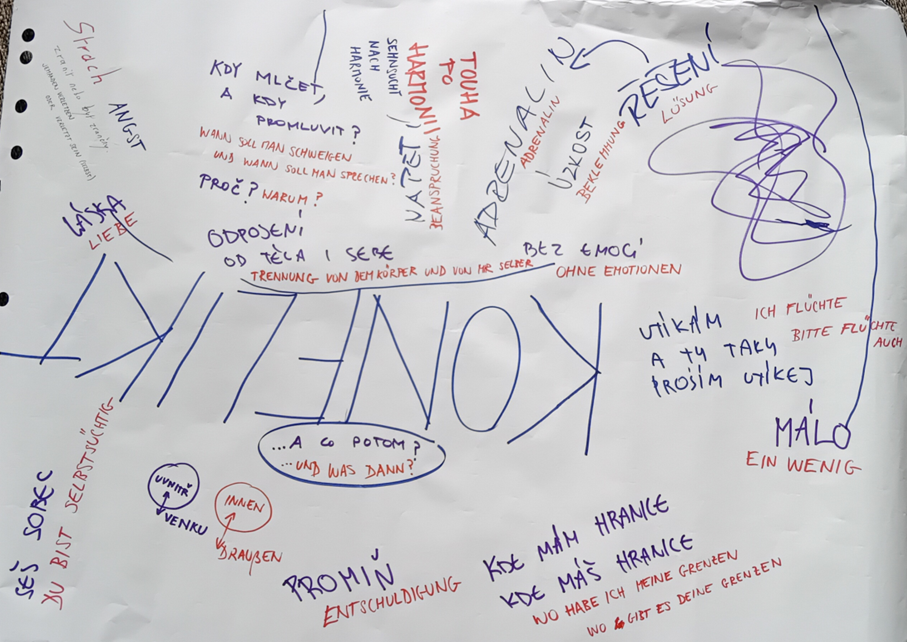 Strach
zranit nebo být zraněný
JEMANDEN VERLETZEN
ODER VERLETZT SEIN (WERDEN)
ANGST
LÁSKA
LIEBE
KDY MLČET,
A KDY
PROMLUVIT?
WANN SOLL MAN SCHWEIGEN
UND WANN SOLL MAN SPRECHEN?
PROČ? WARUM?
ODPOJENÍ
OD TĚLA I SEBE
TRENNUNG VON DEM KÖRPER UND VON MIR SELBER
BEZ EMOCÍ
OHNE EMOTIONEN
TOUHA
PO
HARMONII
SEHNSUCHT
NACH
HARMONIE
NAPĚTÍ
BEANSPRUCHUNG
ADRENALIN
ADRENALIN
ÚZKOST
BEKLEMMUNG
ŘEŠENÍ
LÖSUNG
KONFLIKT
UTÍKÁM
A TY TAKY
PROSÍM UTÍKEJ
ICH FLÜCHTE
BITTE FLÜCHTE
AUCH
MÁLO
EIN WENIG
...A CO POTOM?
...UND WAS DANN?
SEŠ SOBEC
DU BIST SELBSTSÜCHTIG
UVNITŘ
VENKU
INNEN
DRAUßEN
PROMIŇ
ENTSCHULDIGUNG
KDE MÁM HRANICE
KDE MÁŠ HRANICE
WO HABE ICH MEINE GRENZEN
WO GIBT ES DEINE GRENZEN